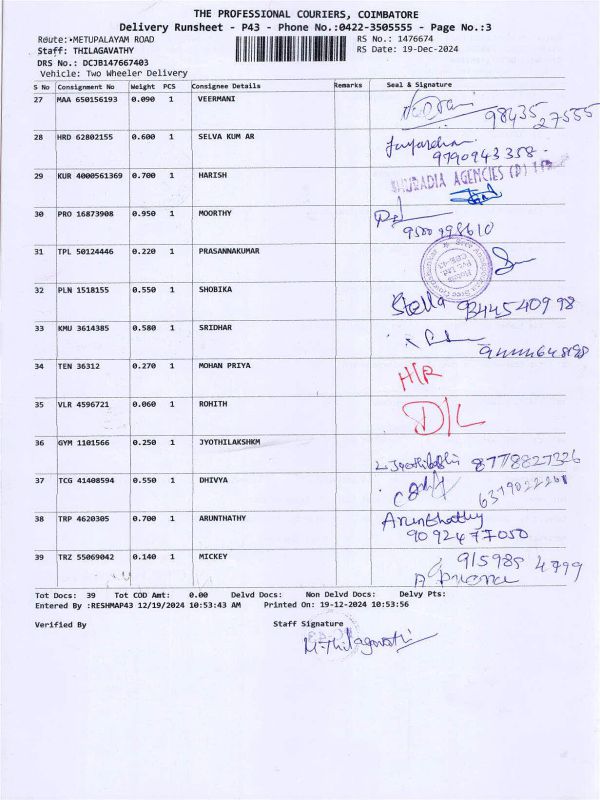 THE PROFESSIONAL COURIERS, COIMBATORE
Delivery Runsheet - P43 - Phone No.:0422-3505555 - Page No.:3
Route:•METUPALAYAM ROAD RS No.: 1476674
Staff: THILAGAVATHY RS Date: 19-Dec-2024
DRS No.: DCJB147667403
Vehicle: Two Wheeler Delivery
S No Consignment No Weight PCS Consignee Details Remarks Seal & Signature
27 MAA 650156193 0.090 1 VEERMANI
98435 27555
28 HRD 62802155 0.600 1 SELVA KUM AR
9790943 358.
29 KUR 4000561369 0.700 1 HARISH
AGENCIES (P)
30 PRO 16873908 0.950 1 MOORTHY
31 TPL 50124446 0.220 1 PRASANNAKUMAR
32 PLN 1518155 0.550 1 SHOBIKA
Stella 93445409 98
33 KMU 3614385 0.580 1 SRIDHAR
34 TEN 36312 0.270 1 MOHAN PRIYA
H/R
35 VLR 4596721 0.060 1 ROHITH
D/L
36 GYM 1101566 0.250 1 JYOTHILAKSHKM
8778827326
37 TCG 41408594 0.550 1 DHIVYA
6379022261
38 TRP 4620305 0.700 1 ARUNTHATHY
Arunthathy
9092477050
39 TRZ 55069042 0.140 1 MICKEY
915985 4799
Tot Docs: 39 Tot COD Amt: 0.00 Delvd Docs: Non Delvd Docs: Delvy Pts:
Entered By :RESHMAP43 12/19/2024 10:53:43 AM Printed On: 19-12-2024 10:53:56
Verified By Staff Signature
M.Thilagavathi